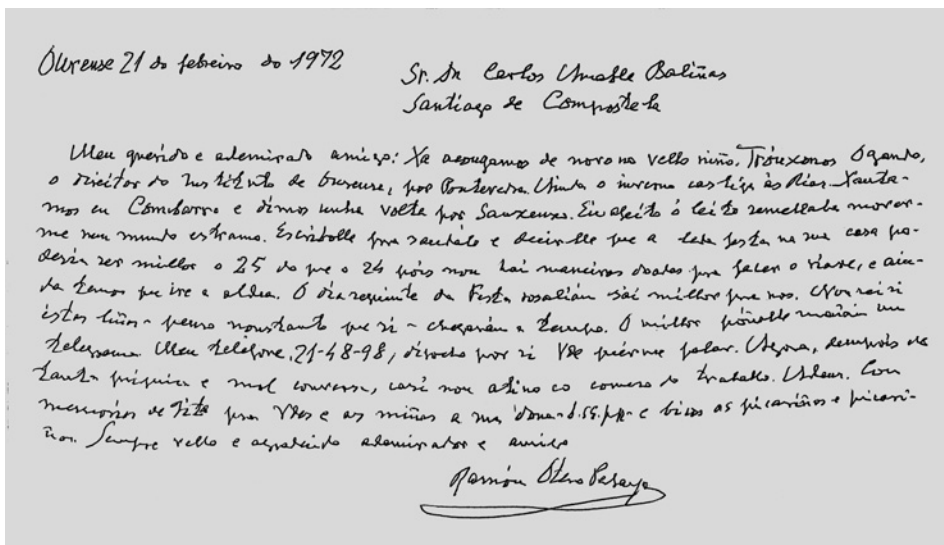 Ourense 21 do febreiro do 1972
Sr. Dn Carlos Amable Baliñas
Santiago de Compostela
Meu querido e ademirado amigo: Xa acougamos de novo no vello niño. Tróuxonos Ogando,
o direitor do Instituto de Ourense, por Pontevedra. Ainda o inverno castiga ás Rías. Xanta-
mos en Combarro e dimos unha volta por Sanxenxo. Eu afeito ó leito semellaba mover-
me nun mundo estrano. Escribolle pra saudálo e decirlle que a leda festa na sua casa po-
dería ser millor o 25 do que o 24 pois non hai maneiras doadas pra facer o viaxe, e ain-
da temos que ire a aldea. O día seguinte da Festa rosalián sai millor pra nos. Non sei si
istas liñas - penso nonstante que si - chegarán a tempo. O millor póñolle mañán un
telegrama. Meu teléfono, 21-48-98, dígocho por si Vde quérme falar. Agora, dempois de
tanta priguiza e mol conversa, casi non atino co comezo do traballo. Adeus. Con
memorias de Fita pra Vdes e as miñas a sua dona - q.s.p.b. - e bicos as picariñas e picari-
ños. Sempre vello e agradecido ademirador e amigo
Ramón Otero Pedrayo